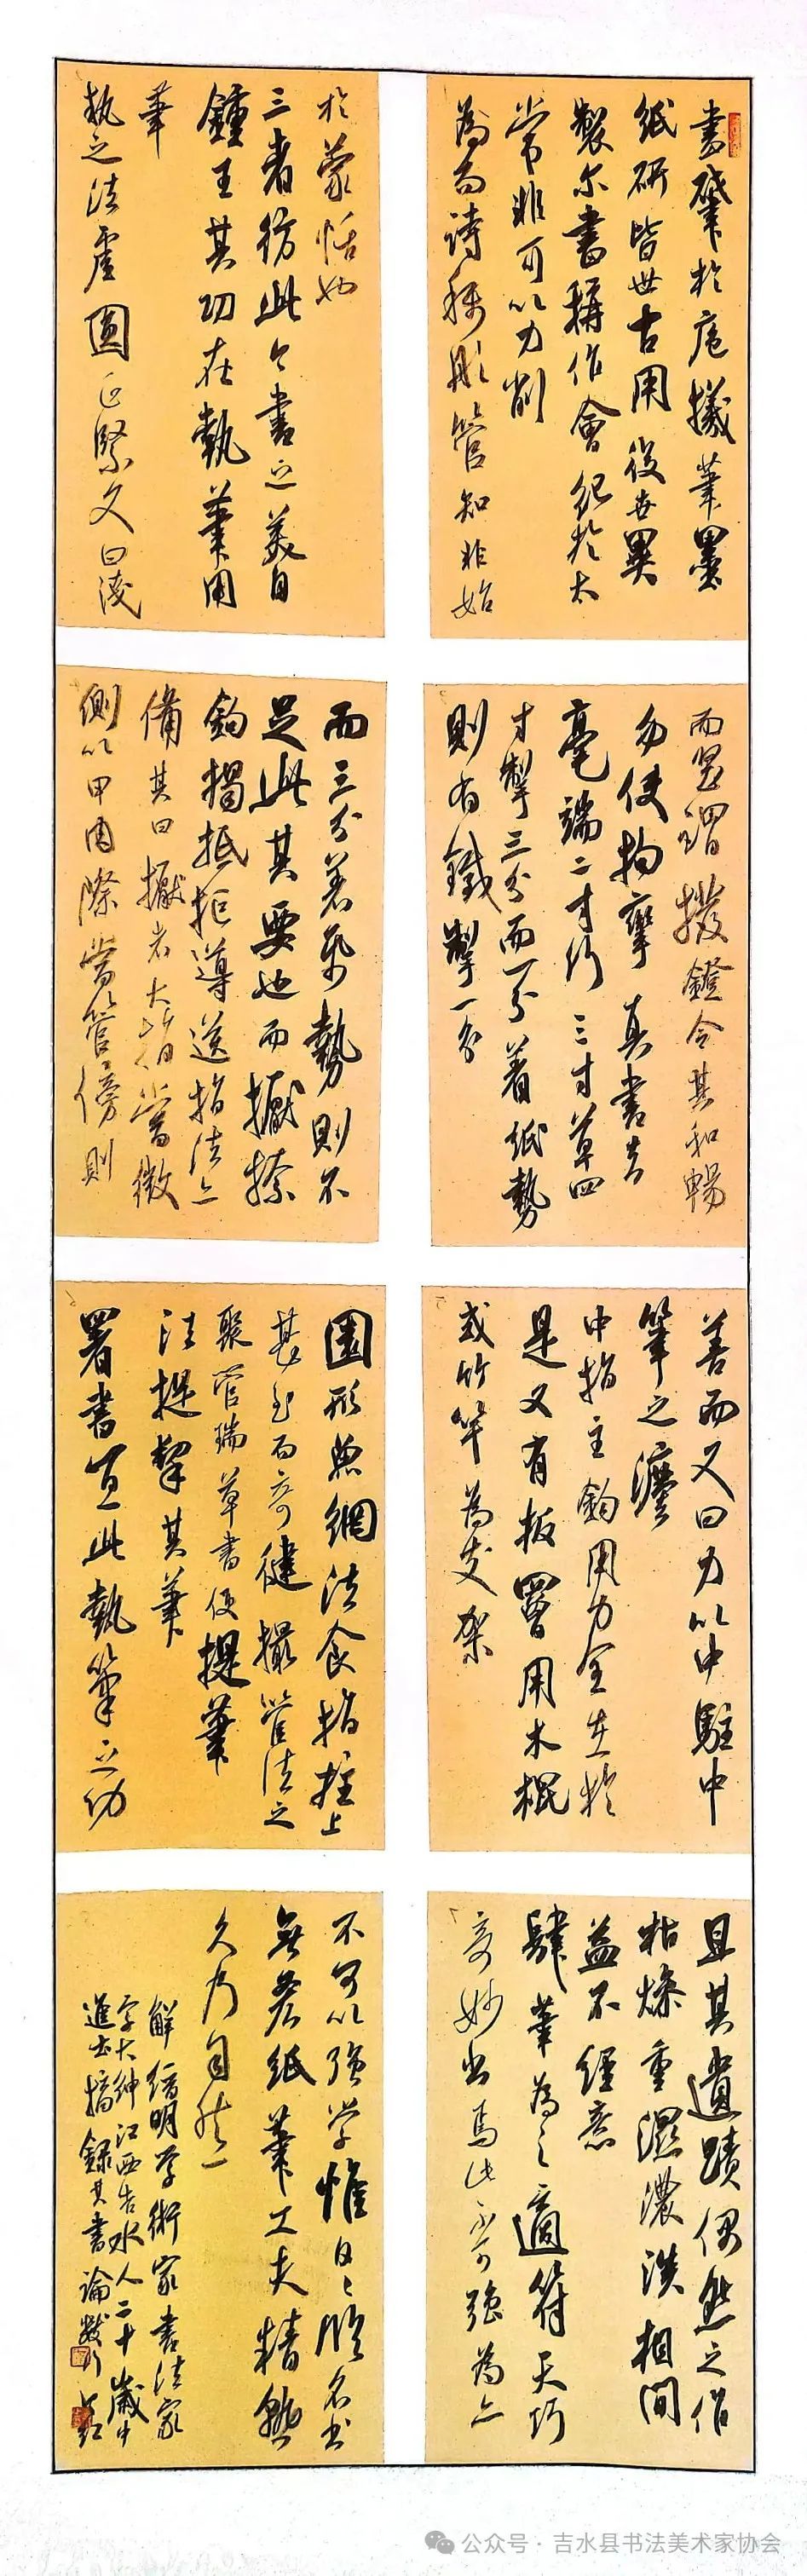 書肇於庖犧筆墨
紙研皆世古用後世異
製尔書稱作會紀於太
常非可以刀削
為而詩稱彤管知非始
於蒙恬也
三者彷此今書之美自
鍾王其功在執筆用
筆
執之法虛圓正緊又曰淺
而堅謂撥鐙令其和暢
勿使拘攣真書去
毫端二寸行三寸草四
寸掣三分而一分着紙勢
則有餘掣一分
而三分着紙勢則不
足此其要也而擫捺
鈎揭抵拒導送指法亦
備其曰擫者大指當微
側以甲肉際當管傍則
善而又曰力以中駐中
筆之法
中指主鈎用力全在於
是又有扳罾用木棍
或竹竿為支架
圓形魚網法食指拄上
甚至而奇健撮管法之
聚管端草書便提筆
法提挈其筆
署書宜此執筆之功
且其遺蹟偶然之作
枯燥重濕濃淡相間
益不經意
肆筆為之適符天巧
奇妙出焉此不可強為亦
不可以強學惟日日臨名書
無吝紙筆工夫精熟
久乃自然
解縉明學術家書法家
字大紳江西吉水人二十歲中
進士摘錄其書論數行
公众号·吉水县书法美术家协会